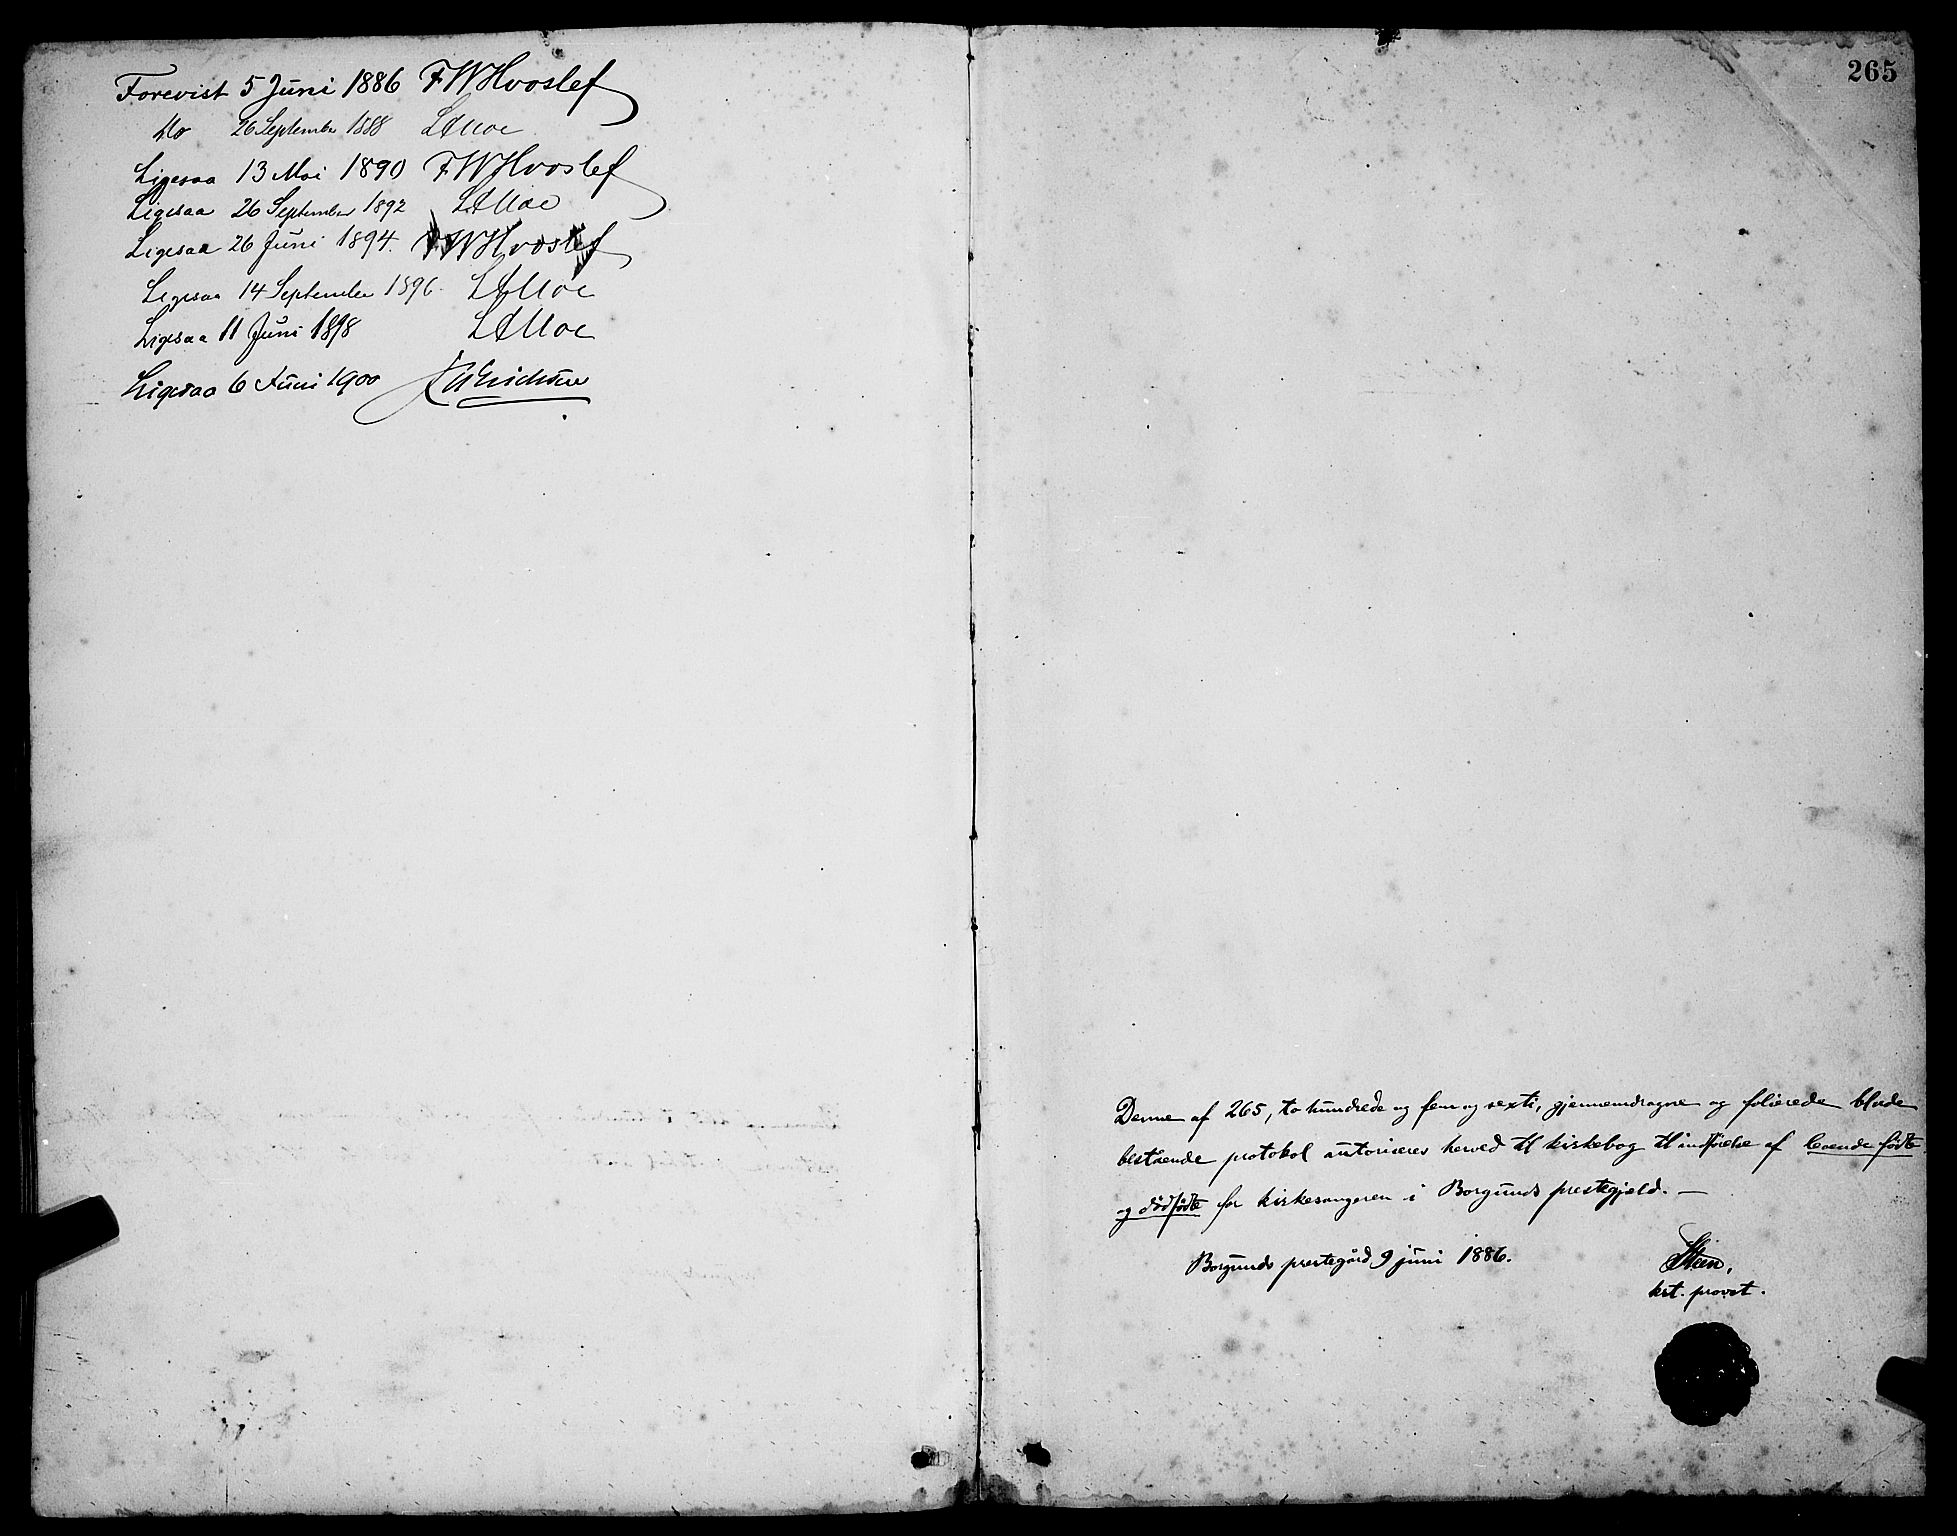 Forevist 5 Juni 1886 FWHvoslef
Do 26 September 1888 LAMoe
Ligesaa 13 Mai 1890 FWHvoslef
Ligesaa 26 September 1892 LAMoe
Ligesaa 26 Juni 1894. FWHvoslef
Ligesaa 14 September 1896. LAMoe
Ligesaa 11 Juni 1898 LAMoe
Ligesaa 6 Juni 1900
265
Denne af 265, to hundrede og fem og sexti, gjennemdragne og folierede blade
bestående protokol autoriseres herved til kirkebog til indførelse af levende fødte
og dødfødte for kirkesangeren i Borgunds prestegjæld. —
Borgunds prestegård 9 juni 1886.
Steen,
kst. provst.